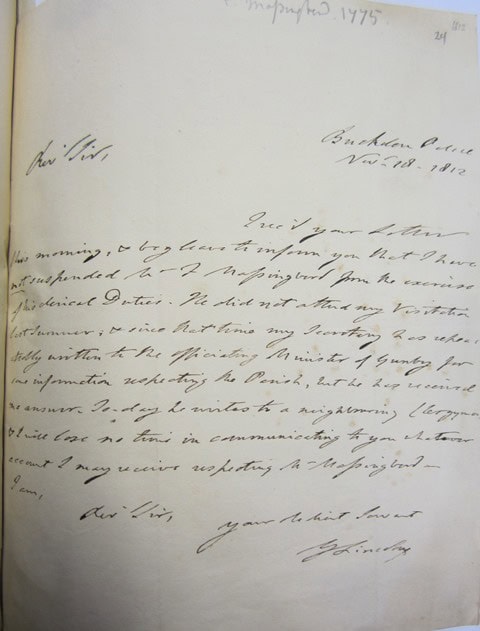 Massingberd. 1775.
24 1812
Buckden Palace
Novr. 18. 1812
Revd Sir,
I rec'd your Letter
this morning, & beg leave to inform you that I have
not suspended Mr T Massingberd from the exercise
of his clerical Duties. He did not attend my Visitation
last Summer, & since that time my Secretary has repea
tedly written to the officiating Minister of Gunby for
some information respecting the Parish, but he has received
no answer. To-day he writes to a neighbouring Clergyman
& I will lose no time in communicating to you whatever
account I may receive respecting Mr Massingberd —
I am,
Revd Sir,
your obedient Servant
G Lincoln